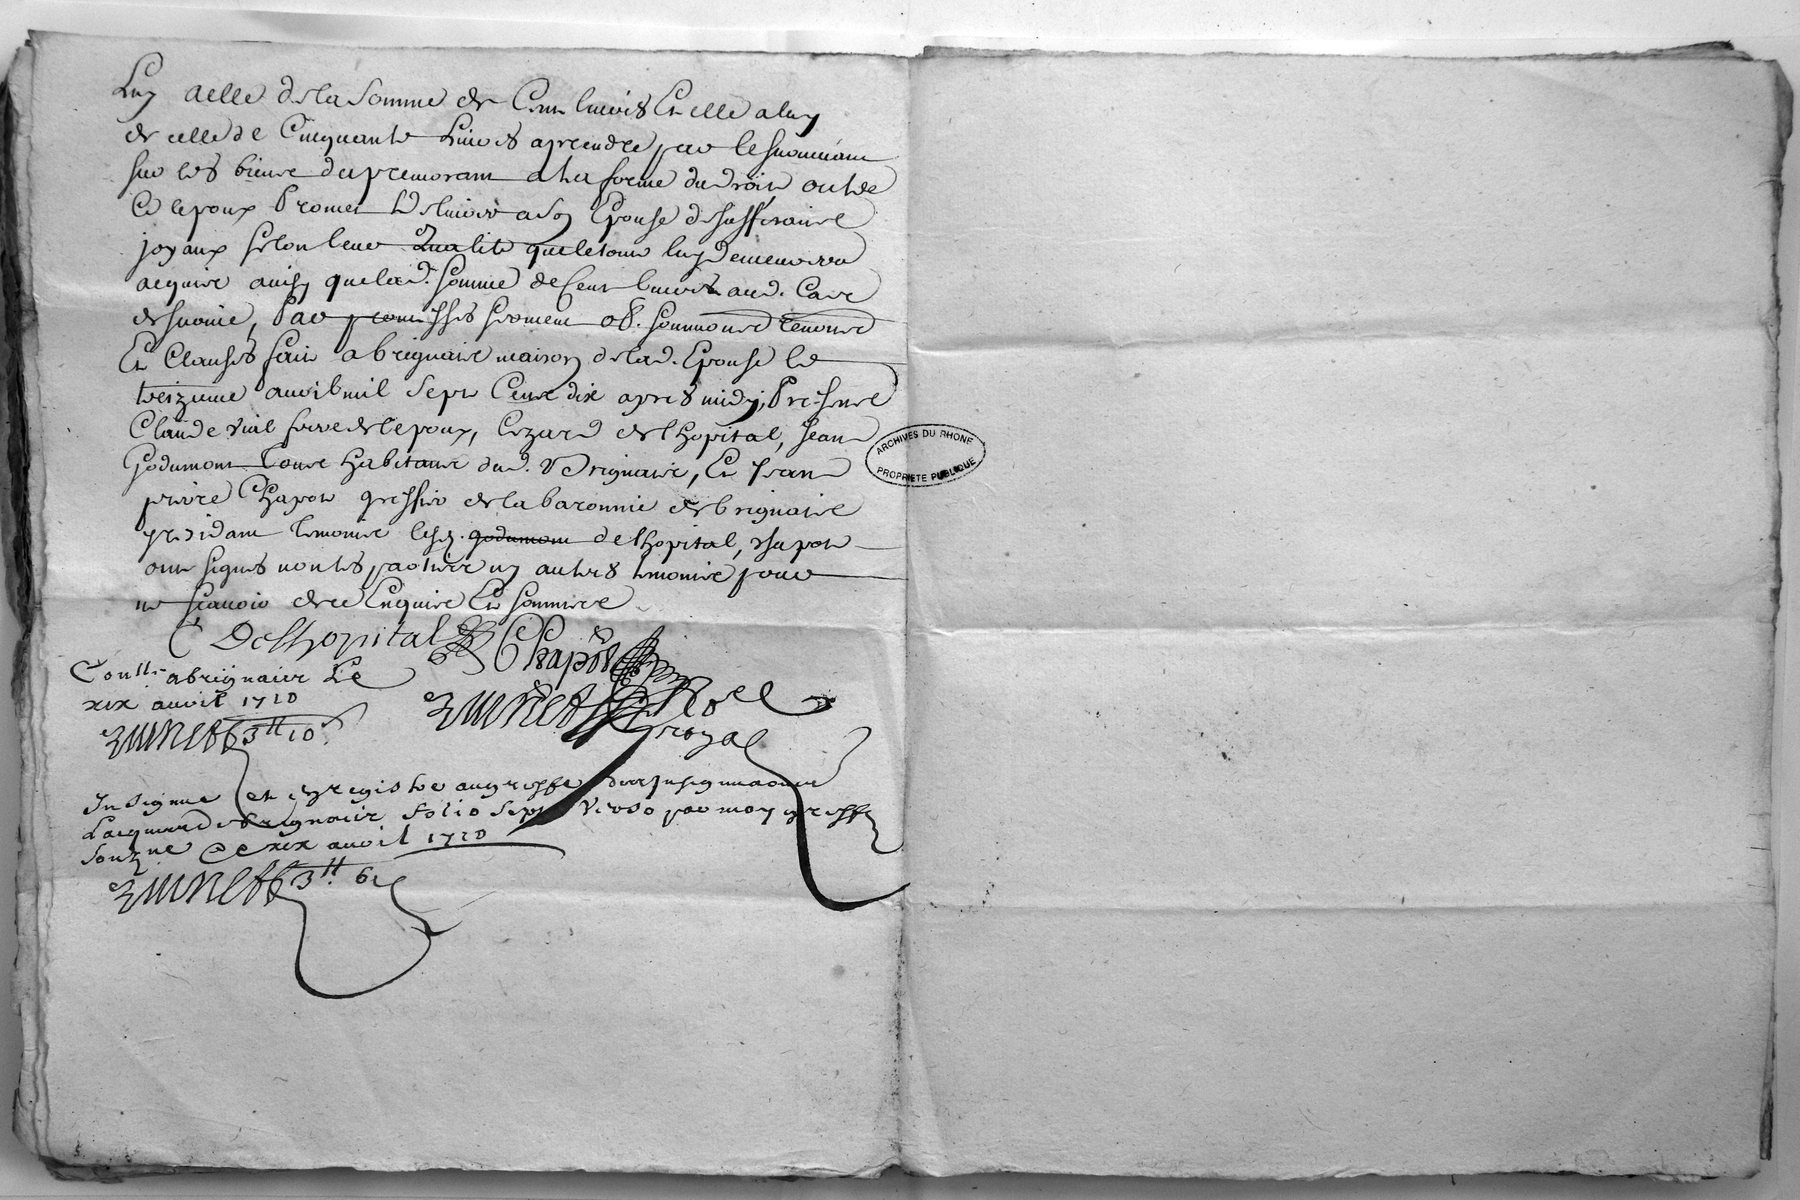 Luy a elle de la somme de Cent livres Et elle a luy
de celle de Cinquante Livres a prendre par le survivant
sur les biens du premorant a la forme du droit outre
Ce lepoux Promet de livrer a son Epouse des
joyaux selon leur qualite que le tout luy demeurera
acquis ainsy que lad. somme de Cent livres aud. Cas
de survie, Par promesses serment ob. soumons renons
Et Clauses fait a brignais maison de lad. Epouse le
treizieme avril mil sept Cent dix apres midy, Presens
Claude vial frere de lepoux, Cezard de lhopital, Jean
Godumont tous habitans dud. Brignais, Et Jean
pierre Chapot greffier de la baronnie de brignais
y residant temoins lesd. godumont de lhopital, chapot
ont signes non les parties ny autres temoins pour
ne scavoir de ce Enquis Et sommes
C Delhopital Chapot
Conlle a brignais Le
xix avril 1710
3tt 10
royal
Insignue et enregistre au greffe des Insignuaons
de brignais folio sept verso par moy greff
souzne Ce xix avril 1710
3tt 6
ARCHIVES DU RHONE
PROPRIETE PUBLIQUE